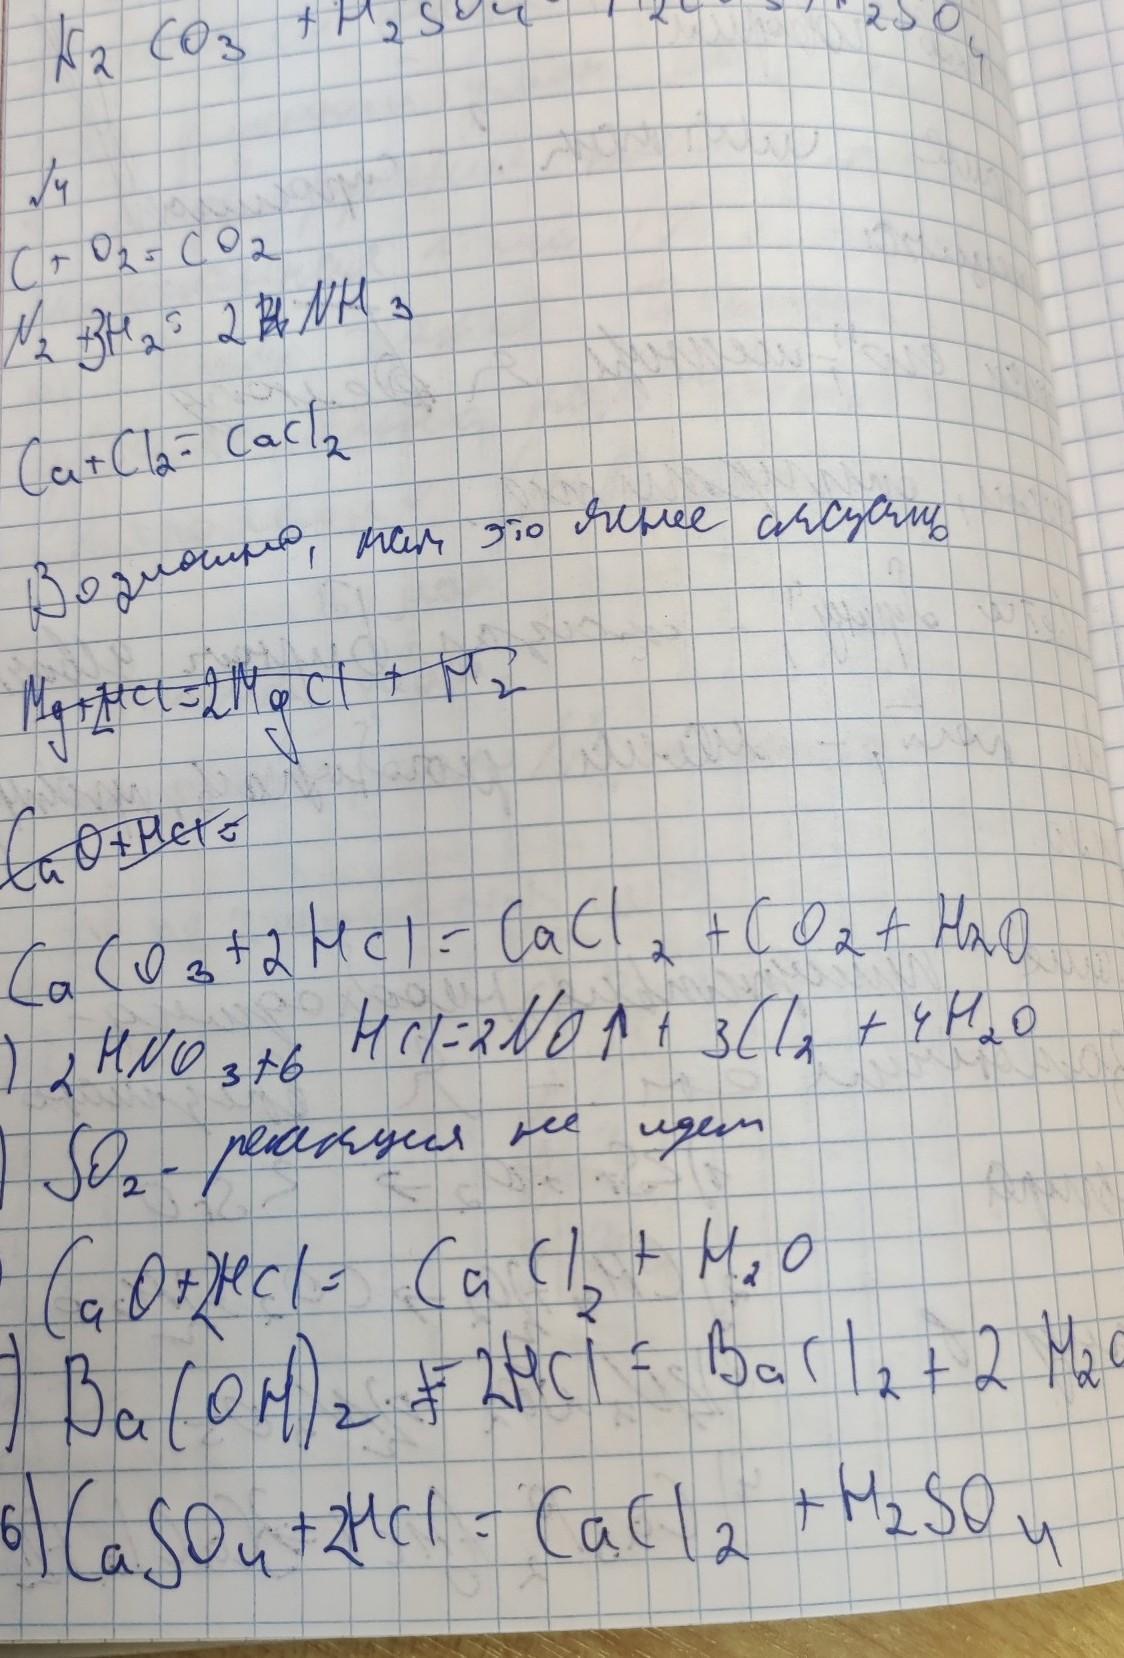 N2 CO3 + H2SO4
√4
C + O2 = CO2
N2 + 3H2 = 2 NH3
Ca + Cl2 = CaCl2
Возможно, там это
Mg + 2HCl = 2MgCl + H2
CaO + HCl =
CaCO3 + 2HCl = CaCl2 + CO2 + H2O
) 2HNO3 + 6 HCl = 2NO↑ + 3Cl2 + 4H2O
) SO2 - реакция не идет
) CaO + 2HCl = CaCl2 + H2O
) Ba(OH)2 + 2HCl = BaCl2 + 2 H2O
6) CaSO4 + 2HCl = CaCl2 + H2SO4